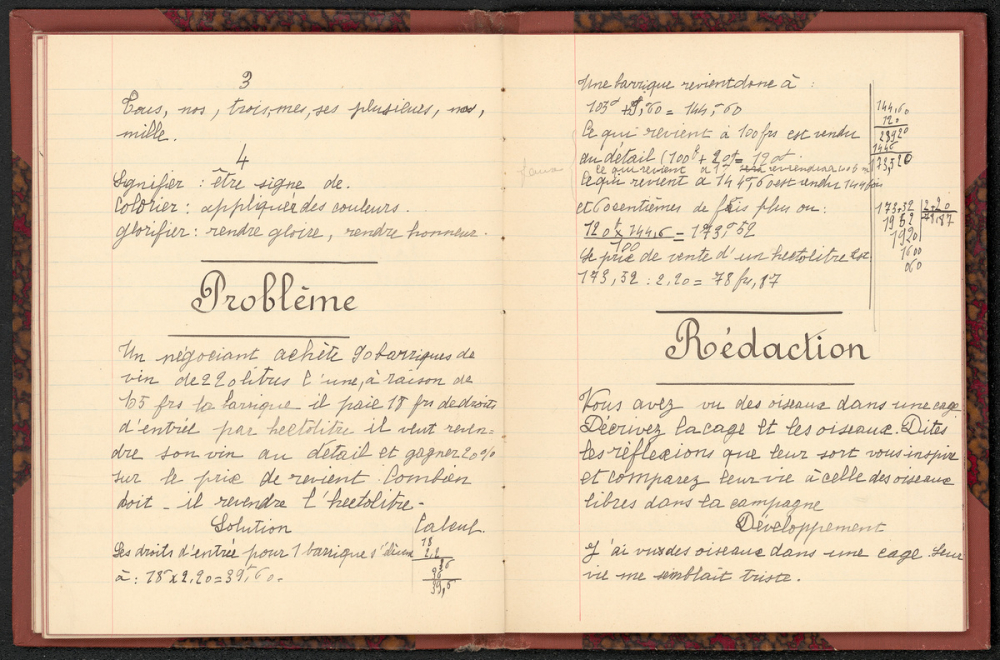 3
Tous, nos, trois, mes, ses plusieurs, nos,
mille.
4
Signifier : être signe de.
Colorier : appliquer des couleurs.
glorifier : rendre gloire, rendre honneur.
Problème
Un négociant achète 90 barriques de
vin de 220 litres l'une, à raison de
105 frs la barrique il paie 18 frs de droits
d'entrée par hectolitre il veut reven-
dre son vin au détail et gagner 20%
sur le prix de revient Combien
doit-il revendre l'hectolitre.
Solution
Calcul
Les droits d'entrée pour 1 barrique s'élève
à : 18f x 2,20 = 39f,60.
18
2,2
36
39,6
Une barrique revient donc à :
105f + 39,60 = 144f,60
Ce qui revient à 100 frs est vendu
au détail (100f + 20f) = 120f
ce qui revient à 1f
Ce qui revient à 144f,60 est vendu 144 fois
et 60 centièmes de fois plus ou :
120f x 144,6 = 173f52
100
Le prix de vente d'un hectolitre est
173,52 : 2,20 = 78 fr,87
144,60
120
28920
1446
173,520
173,52 2,20
1952 78,87
1920
1600
060
faux
Rédaction
Vous avez vu des oiseaux dans une cage
Décrivez la cage et les oiseaux. Dites
les réflexions que leur sort vous inspire
et comparez leur vie à celle des oiseaux
libres dans la campagne
Développement
J'ai vu des oiseaux dans une cage. Leur
vie me semblait triste.